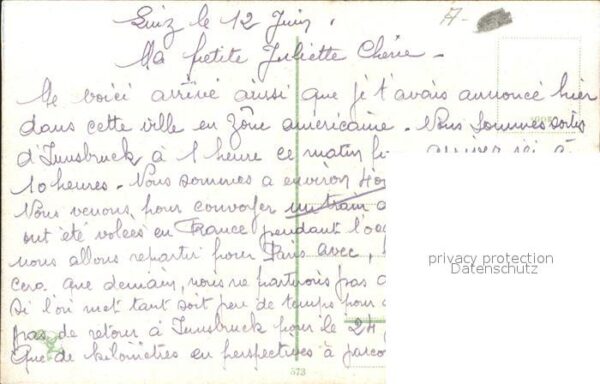 Linz le 12 Juin.
A-
Ma petite Juliette Chérie -
Me voici arrivé ainsi que je t'avais annoncé hier
dans cette ville en zône américaine. Nous sommes sortis
d'Innsbruck à 1 heure ce matin
10 heures. Nous sommes a environ
Nous venons pour convoyer un train
ont été volées en France pendant l'occ
nous allons repartir pour Paris avec,
cera que demain, nous ne partirons pas
Si l'on met tant soit peu de temps pour
pas de retour à Innsbruck pour le 24
Que de kilomètres en perspectives à parco
privacy protection
Datenschutz
573